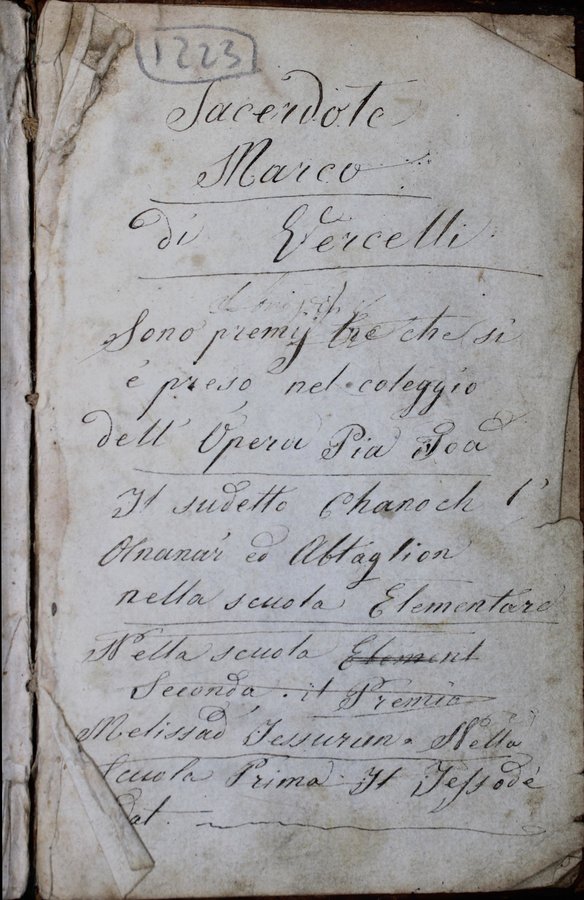 1223
Sacerdote
Marco
di Vercelli
Sono premij tre che si
é preso nel coleggio
dell' Opera Pia Foa
Il sudetto Chanoch l'
ed Abtaglion
nella scuola Elementare
Nella scuola Element
Seconda. il Premio
Melissad Jessurun. Nella
Scuola Prima. Il Jessodé
dat.